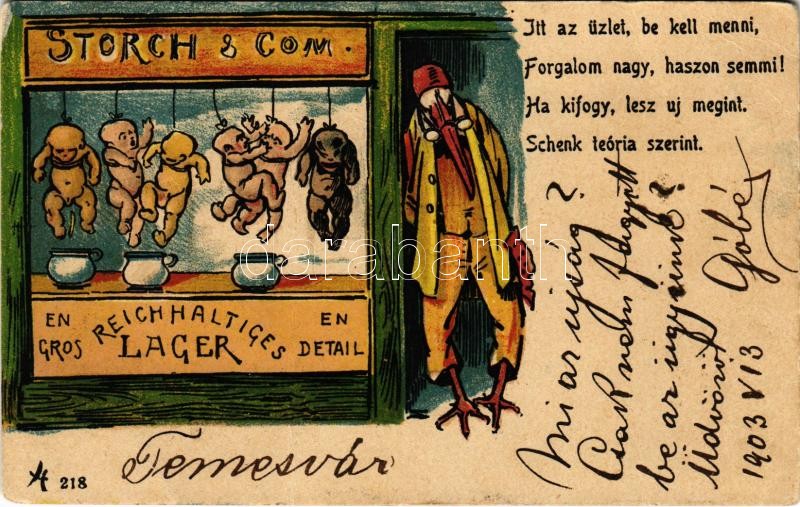 STORCH & COM.
EN GROS
REICHHALTIGES
LAGER
EN DETAIL
Itt az üzlet, be kell menni,
Forgalom nagy, haszon semmi!
Ha kifogy, lesz uj megint.
Schenk teória szerint.
Mi az ujság?
Csak nem fagyott
be az ügyünk?
Üdvözöl
Góbé
1903 VI 3
218
Temesvár
darabanth